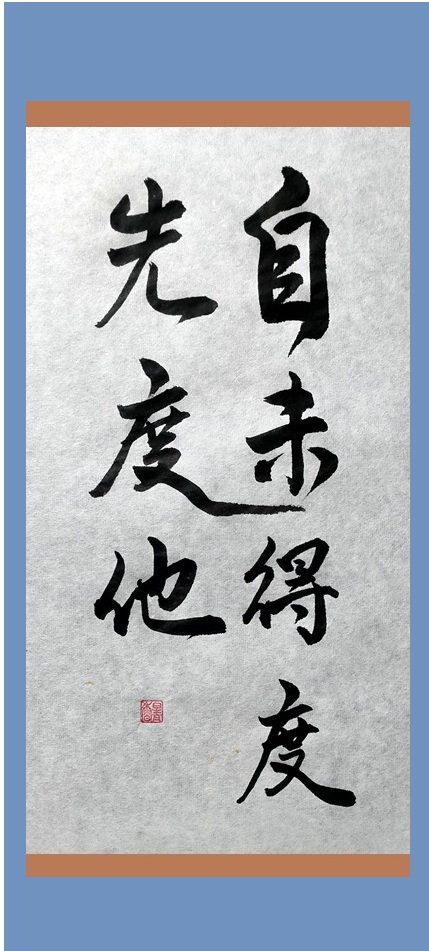 自未得度
先度他